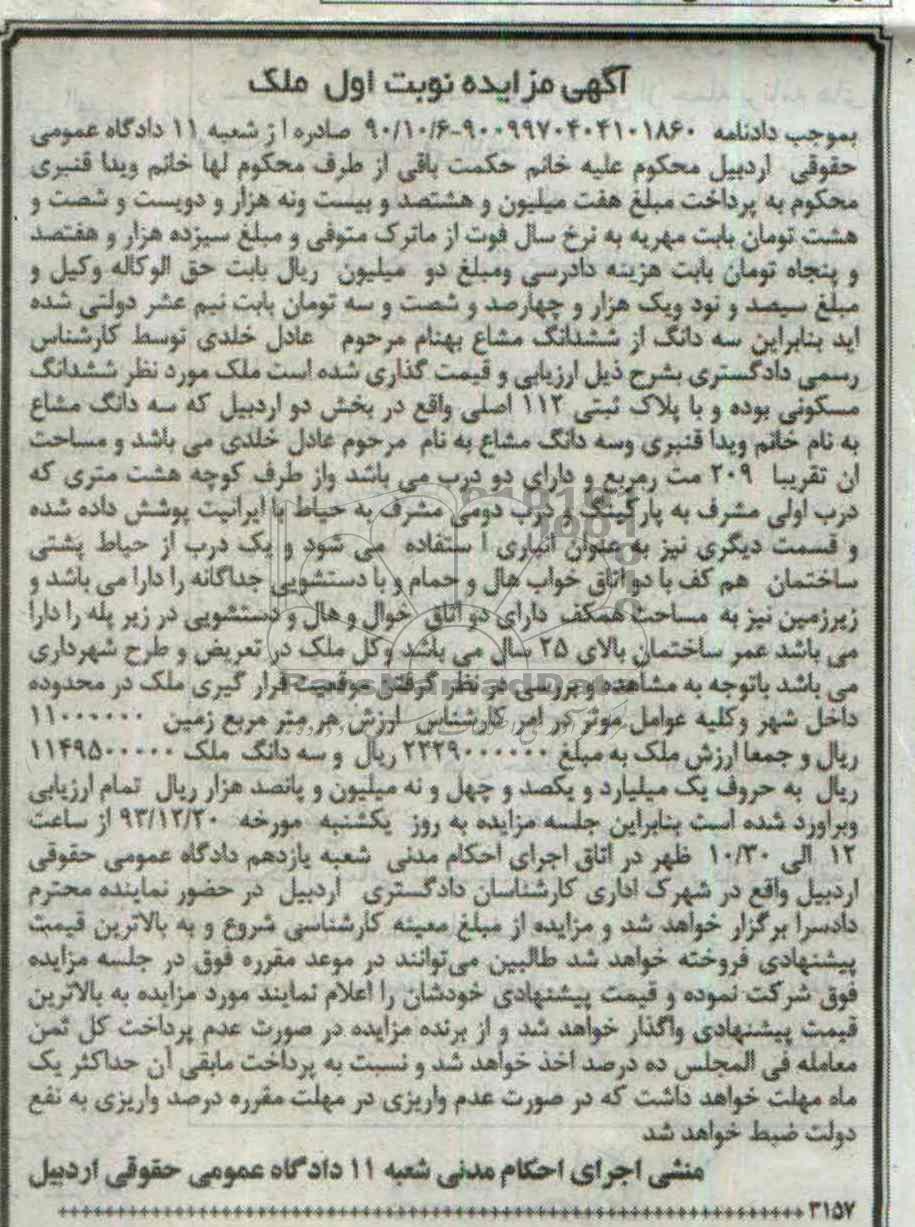 آگهی مزایده نوبت اول ملک
بموجب دادنامه ۹۰۰۹۹۷۰۴۰۴۱۰۱۸۶۰-۹۰/۱۰/۶ صادره از شعبه ۱۱ دادگاه عمومی
حقوقی اردبیل محکوم علیه خانم حکمت باقی از طرف محکوم لها خانم ویدا قنبری
محکوم به پرداخت مبلغ هفت میلیون و هشتصد و بیست ونه هزار و دویست و شصت و
هشت تومان بابت مهریه به نرخ سال فوت از ماترک متوفی و مبلغ سیزده هزار و هفتصد
و پنجاه تومان بابت هزینه دادرسی ومبلغ دو میلیون ریال بابت حق الوکاله وکیل و
مبلغ سیصد و نود ویک هزار و چهارصد و شصت و سه تومان بابت نیم عشر دولتی شده
اید بنابراین سه دانگ از ششدانگ مشاع بهنام مرحوم عادل خلدی توسط کارشناس
رسمی دادگستری بشرح ذیل ارزیابی و قیمت گذاری شده است ملک مورد نظر ششدانگ
مسکونی بوده و با پلاک ثبتی ۱۱۲ اصلی واقع در بخش دو اردبیل که سه دانگ مشاع
به نام خانم ویدا قنبری وسه دانگ مشاع به نام مرحوم عادل خلدی می باشد و مساحت
ان تقریبا ۲۰۹ مت رمربع و دارای دو درب می باشد واز طرف کوچه هشت متری که
درب اولی مشرف به پارکینگ و درب دومی مشرف به حیاط با ایرانیت پوشش داده شده
و قسمت دیگری نیز به عنوان انباری ا ستفاده می شود و یک درب از حیاط پشتی
ساختمان هم کف با دو اتاق خواب هال و حمام و با دستشویی جداگانه را دارا می باشد و
زیرزمین نیز به مساحت همکف دارای دو اتاق خوال و هال و دستشویی در زیر پله را دارا
می باشد عمر ساختمان بالای ۲۵ سال می باشد وکل ملک در تعریض و طرح شهرداری
می باشد باتوجه به مشاهده و بررسی در نظر گرفتن موقعیت قرار گیری ملک در محدوده
داخل شهر وکلیه عوامل موثر در امر کارشناس ارزش هر متر مربع زمین ۱۱۰۰۰۰۰۰
ریال و جمعا ارزش ملک به مبلغ ۲۲۲۹۰۰۰۰۰۰ ریال و سه دانگ ملک ۱۱۴۹۵۰۰۰۰۰
ریال به حروف یک میلیارد و یکصد و چهل و نه میلیون و پانصد هزار ریال تمام ارزیابی
وبراورد شده است بنابراین جلسه مزایده به روز یکشنبه مورخه ۹۳/۱۲/۲۰ از ساعت
۱۲ الی ۱۰/۳۰ ظهر در اتاق اجرای احکام مدنی شعبه یازدهم دادگاه عمومی حقوقی
اردبیل واقع در شهرک اداری کارشناسان دادگستری اردبیل در حضور نماینده محترم
دادسرا برگزار خواهد شد و مزایده از مبلغ معینه کارشناسی شروع و به بالاترین قیمت
پیشنهادی فروخته خواهد شد طالبین می‌توانند در موعد مقرره فوق در جلسه مزایده
فوق شرکت نموده و قیمت پیشنهادی خودشان را اعلام نمایند مورد مزابده به بالاترین
قیمت پیشنهادی واگذار خواهد شد و از برنده مزایده در صورت عدم پرداخت کل ثمن
معامله فی المجلس ده درصد اخذ خواهد شد و نسبت به پرداخت مابقی آن حداکثر یک
ماه مهلت خواهد داشت که در صورت عدم واریزی در مهلت مقرره درصد واریزی به نفع
دولت ضبط خواهد شد
منشی اجرای احکام مدنی شعبه ۱۱ دادگاه عمومی حقوقی اردبیل
۳۱۵۷